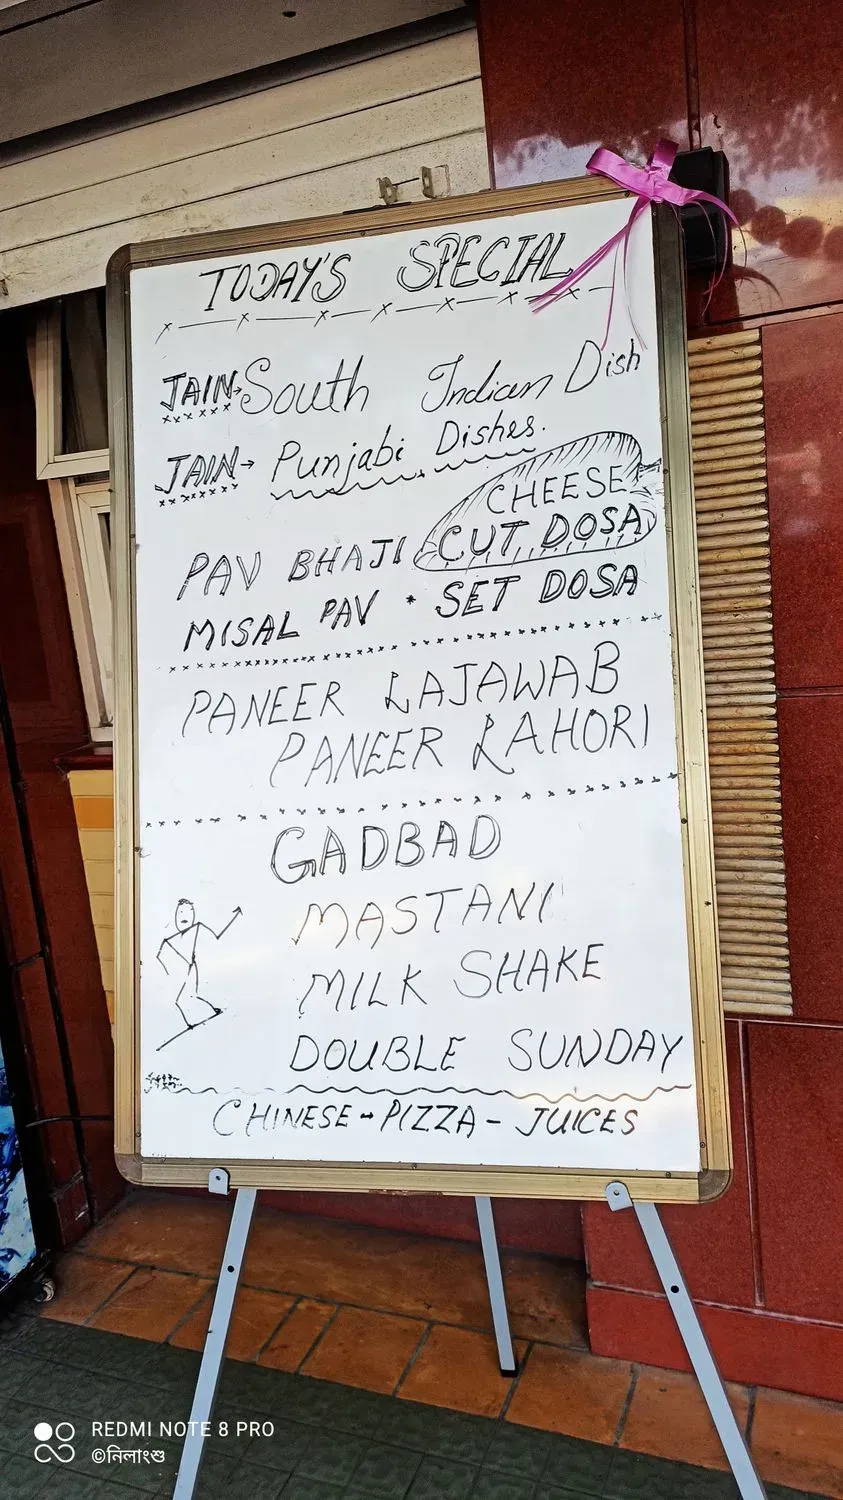 TODAY'S SPECIAL
JAIN → South Indian Dish
JAIN → Punjabi Dishes.
CHEESE
CUT DOSA
PAV BHAJI
MISAL PAV • SET DOSA
PANEER LAJAWAB
PANEER LAHORI
GADBAD
MASTANI
MILK SHAKE
DOUBLE SUNDAY
CHINESE - PIZZA - JUICES
REDMI NOTE 8 PRO
©নিলাংশু